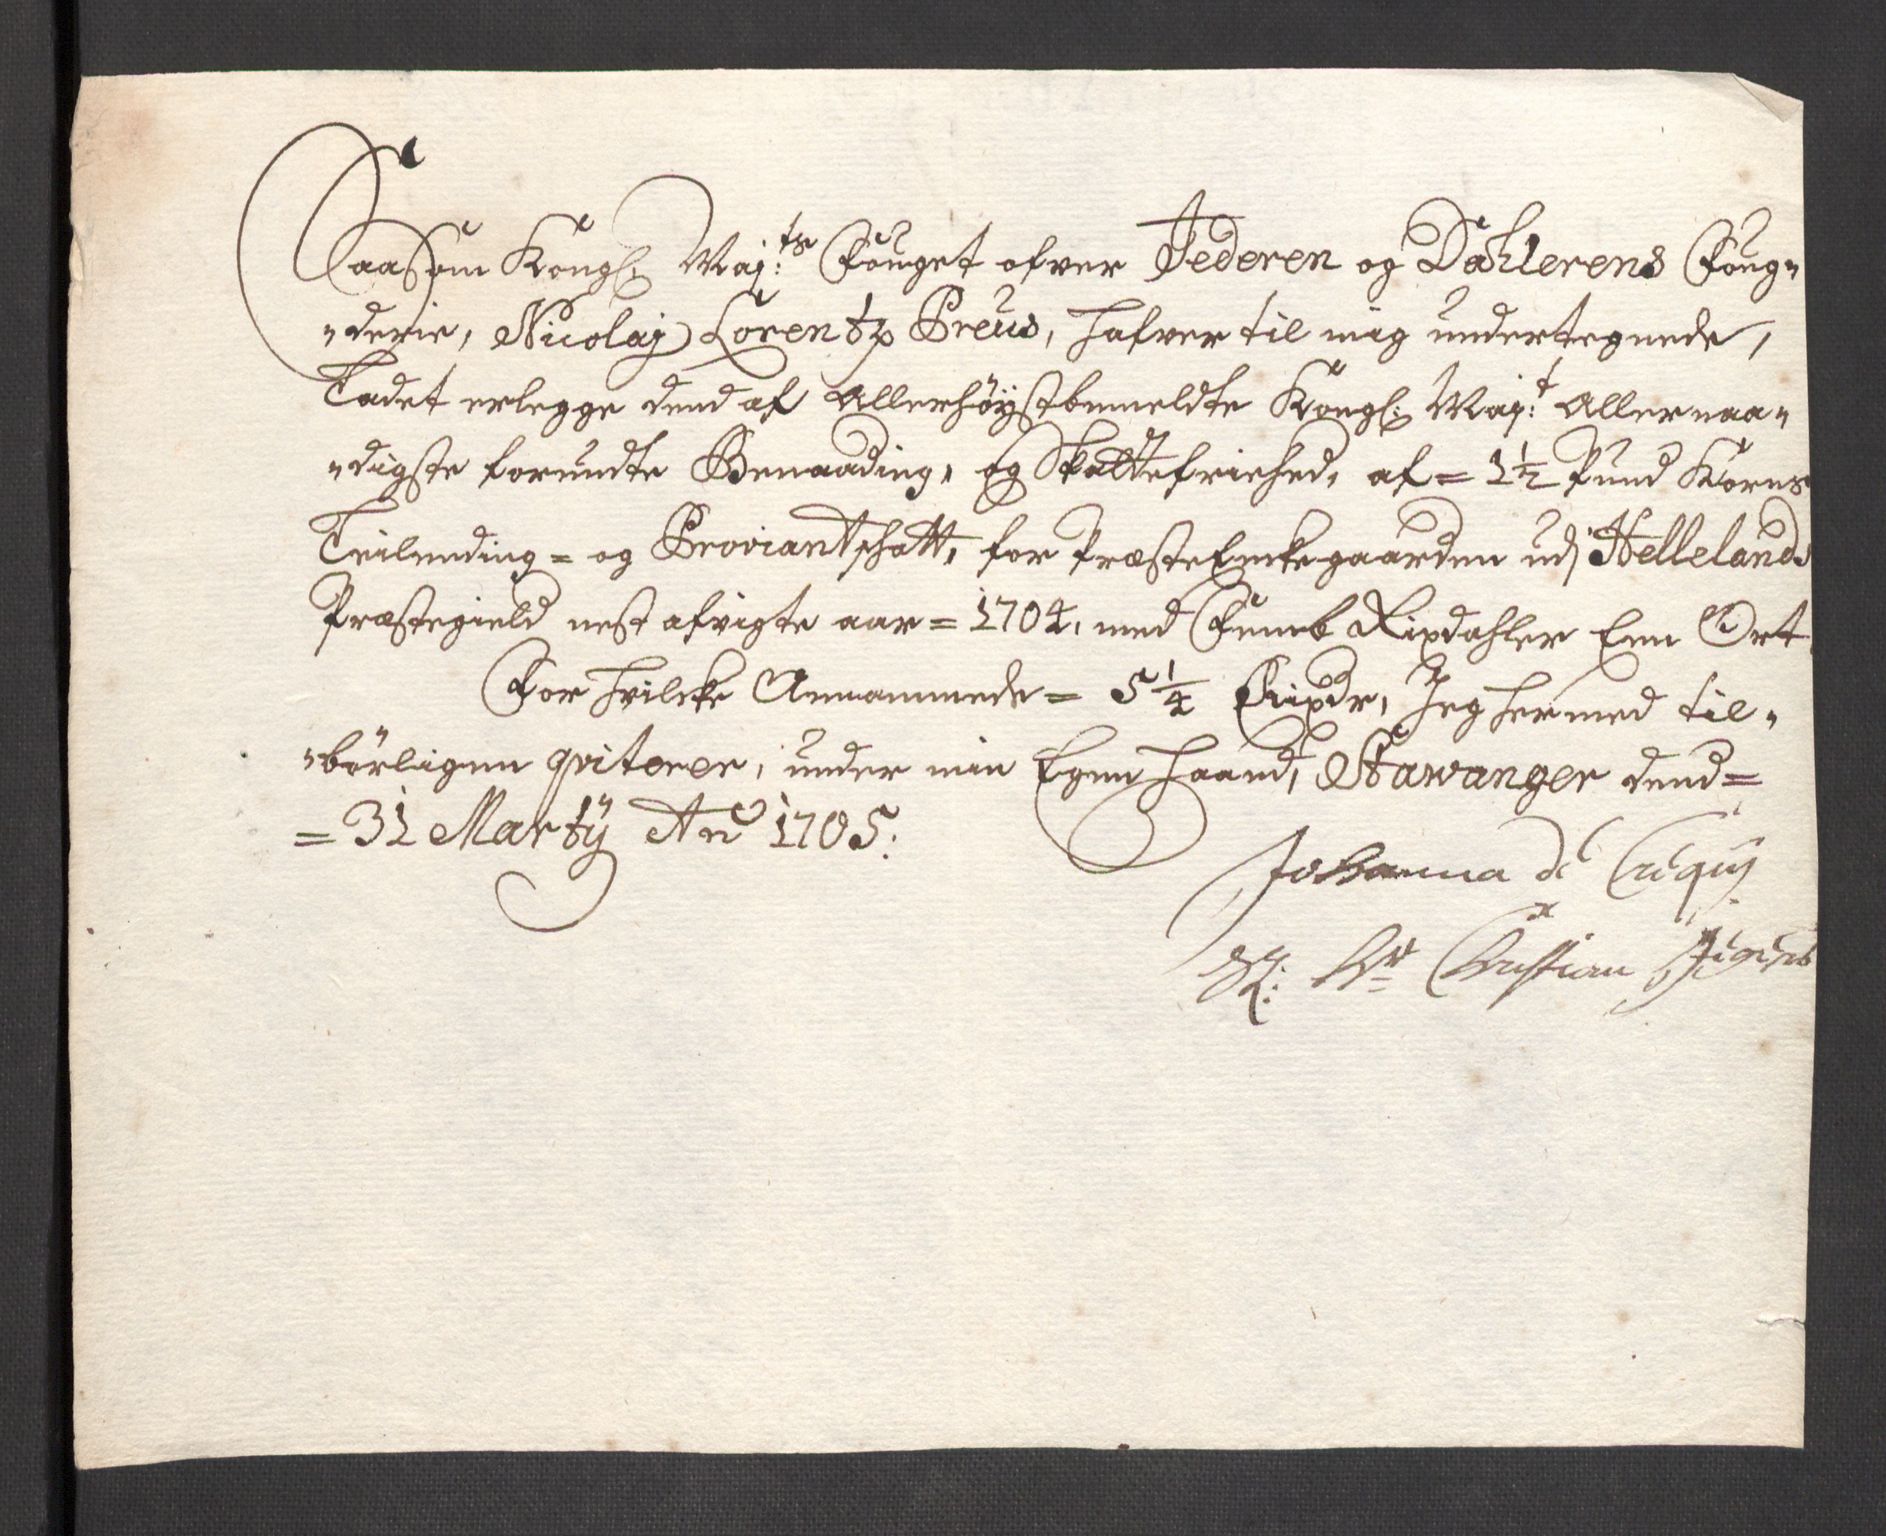 Saasom Kongl: Maj:ts Fouget ofver Jederen og Dahlerens Foug"
"derie, Nicolaj Lorentz Preus, hafver til mig undertegnede,
Ladet erlegge dend af Allerhöÿstbemeldte Kongl: Maj:t Allernaa"
"digste forundte Benaading, og Skattefriehed, af = 1½ Pund Korns
Leilending = og Proviantschatt, for Præste Enkegaarden udj Hellelands
Præstegield nest afvigte aar = 1704, med Femb Rixdahler Een Ort
For hvilcke Annammede = 5¼ Rixdr, Jeg hermed til"
"börligen qviterer, under min Egen haand, Stawanger dend =
= 31 Martÿ Aõ 1705:
Johanna de Cuquij
Sl: Hr Christian